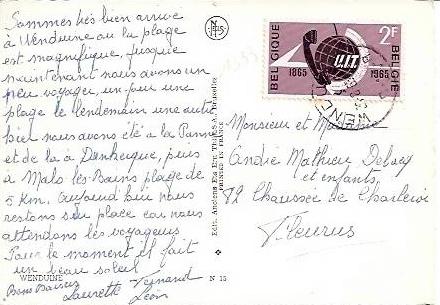 Sommes très bien arrivé
à Wenduine ou la plage
est magnifique, jusque
maintenant nous avons un
peu voyager, un jour une
plage le lendemain une autre
hier nous avons été à la Panne
et de là à Dunkerque, puis
à Malo les Bains plage de
5 Km. aujourd'hui nous
restons sur place car nous
attendons les voyageurs
Pour le moment il fait
un beau soleil
Bons Baisers Fernand
Laurette Léon
WENDUINE
N 15
NELS
Edit. Anciens Ets Ern. THILL, S.A., Bruxelles
PRINTED IN
BELGIQUE
1865
U.I.T.
2F
1965
BELGIE
Monsieur et Madame
André Mathieu
et enfants,
82 Chaussée de Charleroi
Fleurus